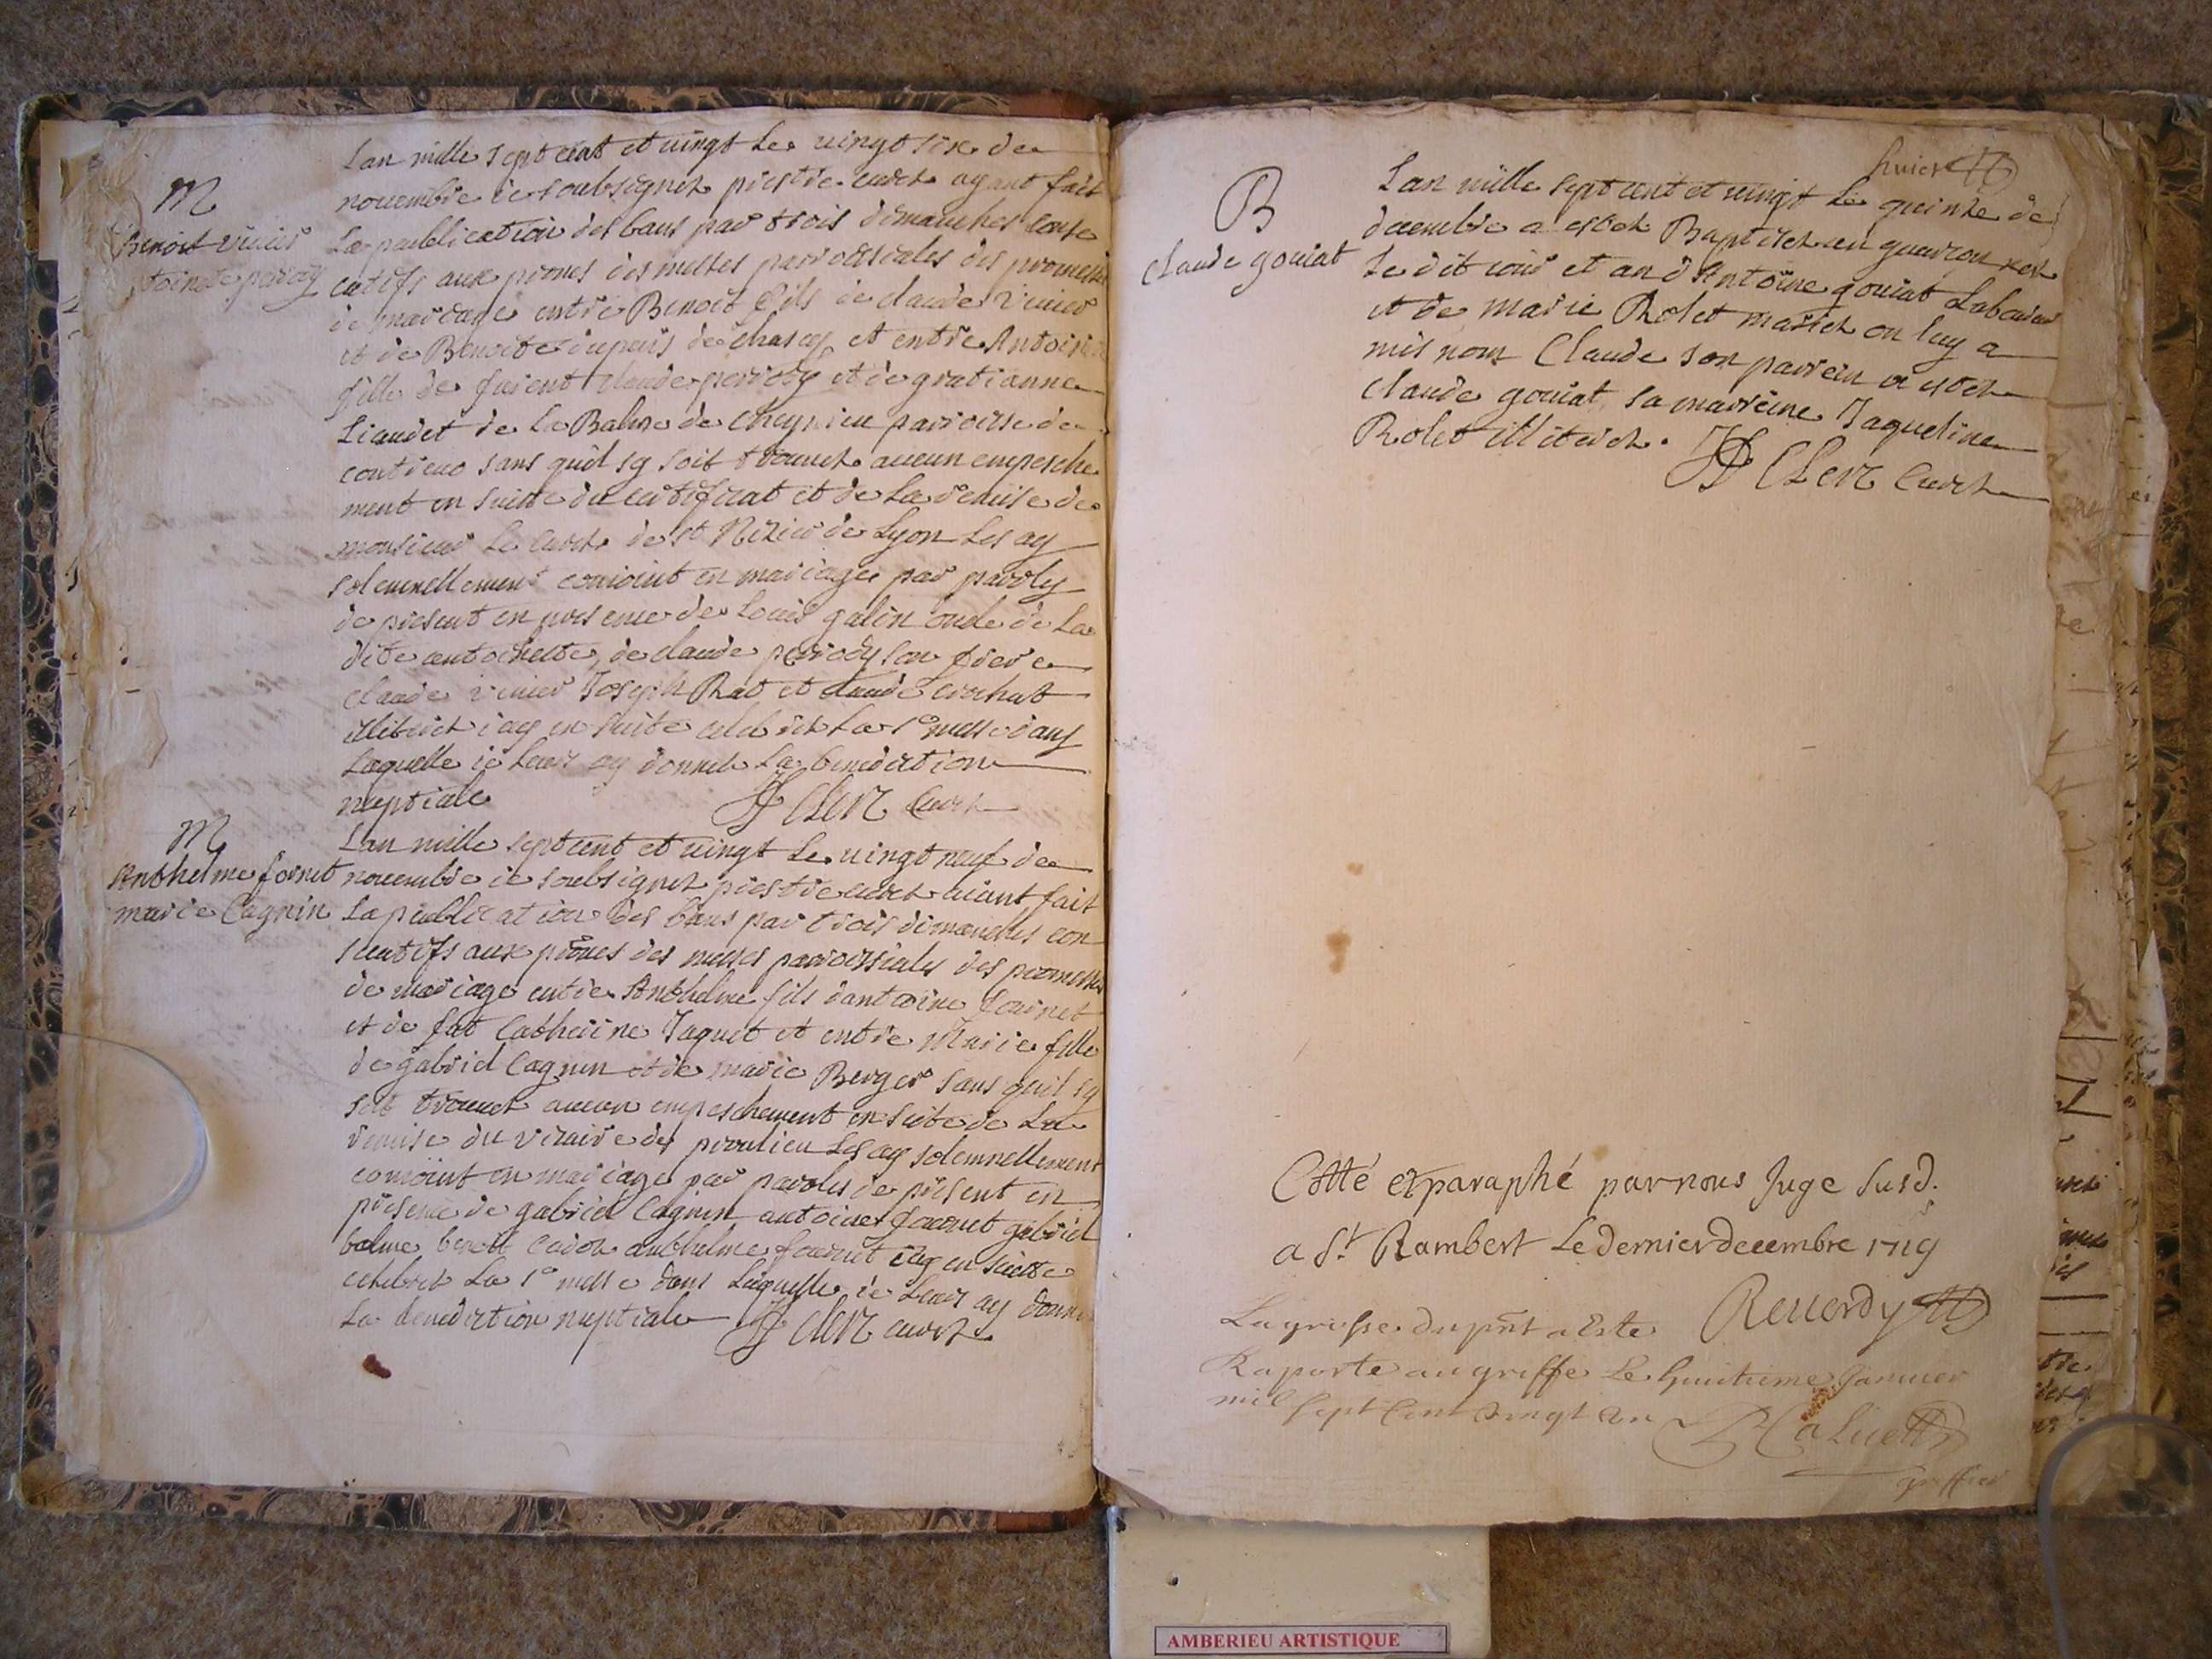 M
Benoit vivier
toinete perrody
Lan mille sept cent et vingt Le vingt six de
novembre ie soubsignez prestre curez ayant fait
La publication des bans par trois dimanches conse
cutifs aux prones des messes parroissiales des promesses
de mariage entre Benoit fils de claude vivier
et de Benoite dupuis de chasey et entre Antoine
fille de furent claude perrody et de gratianne
Liaudet de La Balme de cheynieu parroisse de
contreuo sans quil sy soit trouvez aucun empesche
ment en suitte du certificat et de La remise de
monsieur Le Curez de st Nizier de Lyon Les ay
solemnellement conioint en mariage par paroles
de present en presence de Louis galin oncle de La
dite antoinette, de claude perrody son frere
claude vivier Joseph Rat et claude crochat
illitirez iay en suite celebrez La ste messe dans
Laquelle ie Leur ay donnez La benediction
nuptiale JF CLerz Curez
M
Anthelme fornet
marie Cagnin
Lan mille sept cent et vingt Le vingt neuf de
novembre ie soubsignez prestre curez aiant fait
La publication des bans par trois dimanches con
secutifs aux prones des messes parroissiales des promesses
de mariage entre Anthelme fils dantoine fournet
et de fut Catherine Jaquet et entre Marie fille
de gabriel Cagnin et de marie Berger sans quil sy
soit trouvez aucun empeschement en suite de La
remise du vicaire de proulieu Les ay solemnellement
conioint en mariage par paroles de present en
presence de gabriel Cagnin antoine fournet gabriel
balme benoit Cadoz anthelme fournet iay en suitte
celebrez La ste messe dans Laquelle ie Leur ay donné
La benediction nuptiale JF clerz curez
huict
B
claude gouiat
Lan mille sept cent et vingt Le quinze de
decembre a estez Baptisez en guidon nez
Le dit iour et an d'Antoine gouiat Laboureur
et de marie Rolet mariez on luy a
mis nom Claude son parrein a estez
claude gouiat sa marreine Jaqueline
Rolet illitirez. JF CLerz Curez
Cotté et paraphé par nous Juge susd.
a St Rambert Le dernier decembre 1719
Reuerdy
La grosse du pnt a Este
Raporte au greffe Le huitieme Janvier
mil sept Cent vingt un
greffier
AMBERIEU ARTISTIQUE